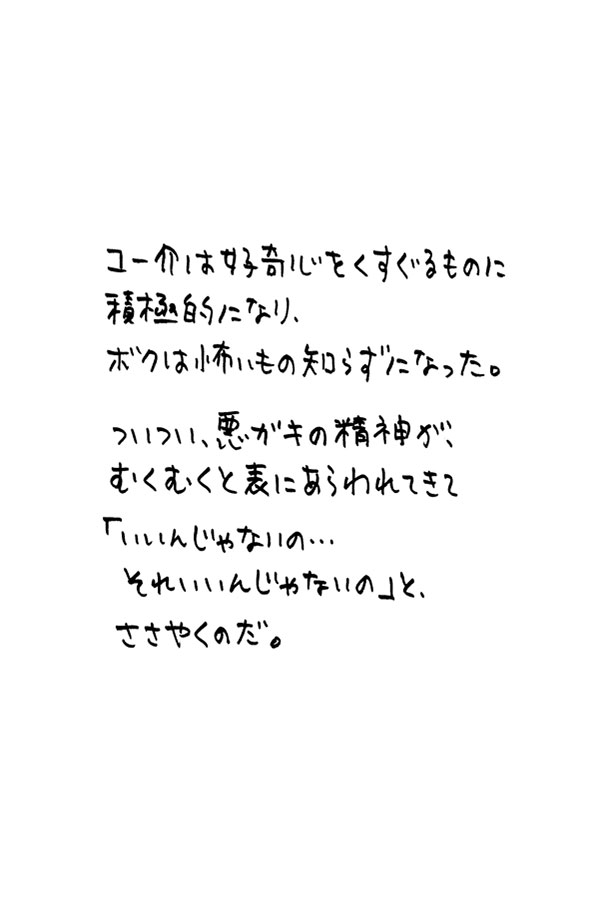 コー介は好奇心をくすぐるものに
積極的になり、
ボクは怖いもの知らずになった。
ついつい、悪ガキの精神が、
むくむくと表にあらわれてきて
「いいんじゃないの…
それいいんじゃないの」と、
ささやくのだ。